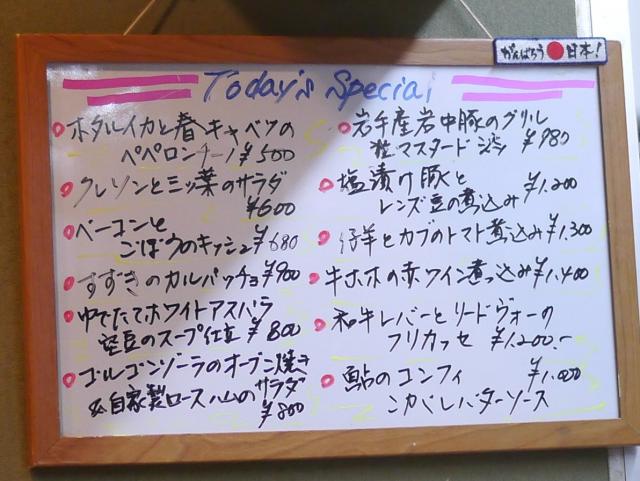 がんばろう日本!
Today's Special
ホタルイカと春キャベツの
ペペロンチーノ ¥500
クレソンと三ッ葉のサラダ
¥600
ベーコンと
ごぼうのキッシュ ¥680
すずきのカルパッチョ ¥900
ゆでたてホワイトアスパラ
空豆のスープ仕立 ¥800
ゴルゴンゾーラのオーブン焼き
& 自家製ロースハムのサラダ
¥800
岩手産岩中豚のグリル
粒マスタード ¥980
塩漬け豚と
レンズ豆の煮込み ¥1,200
仔羊とカブのトマト煮込み ¥1,300
牛ホホの赤ワイン煮っ込み ¥1,400
和牛レバーとリードヴォーの
フリカッセ ¥1,200.-
鮎のコンフィ ¥1,000
こがしバターソース